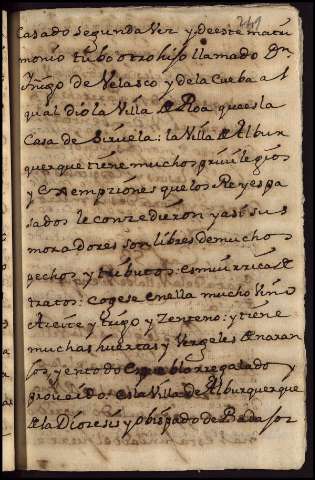 Casado segunda Vez y deeste matri
monio tubo otro hijo llamado Dn
Yñigo de Velasco y de la Cueba a l
qual dio la Villa de Roa ques la
Casa de Siruela: la Villa de Albur
querque tiene muchos priuilegios
y Exempziones que los Reyes pa
sados le conzedieron y asi sus
moradores son libres de muchos
pechos y tributos: es mui rrica de
tratos: Cogese en alla mucho Vino
Azeite y trigo y Zenteno: y tiene
muchas huertas y Vergeles de naran
jos y en todo Es pueblo rregalado y
proueido. es la Villa de Alburquerque
de la Diozesis y obispado de Badajoz